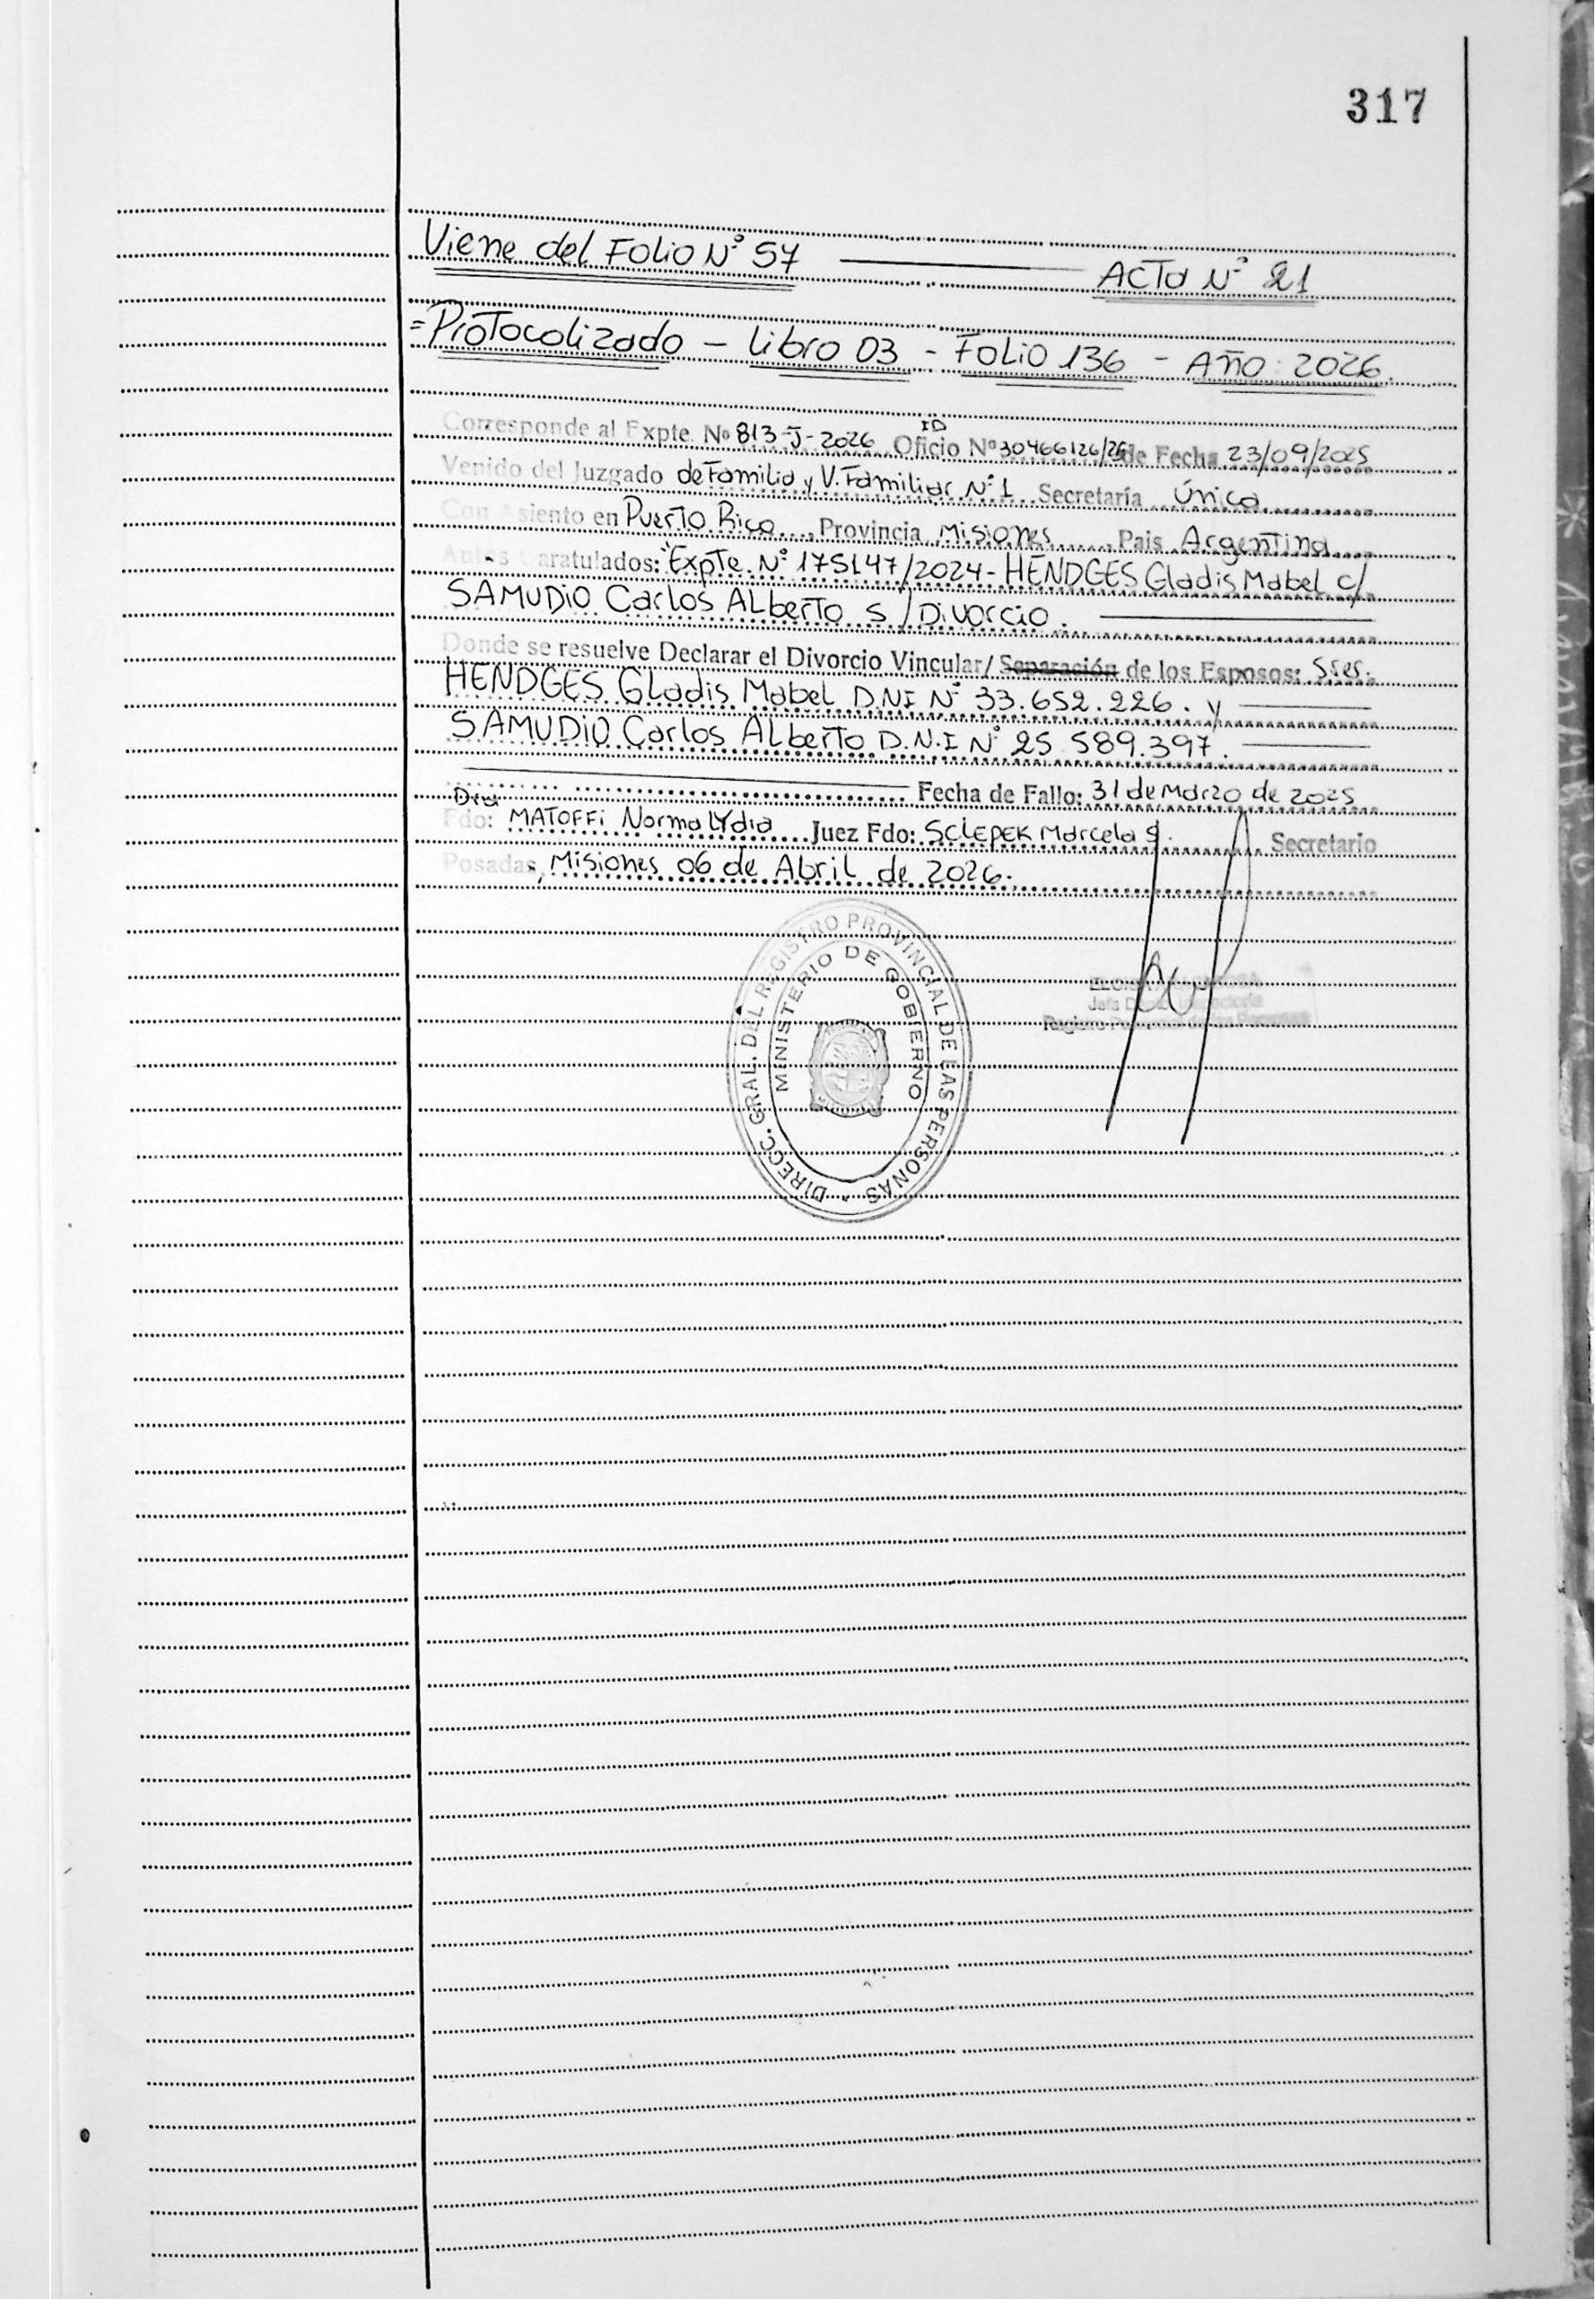 317
Viene del Folio N° 57 ACTA N° 21
=Protocolizado - Libro 03 - Folio 136 - Año: 2026.
Corresponde al Expte. Nº 813-J-2026 Oficio Nº ID 30466126/25 de Fecha 23/09/2025
Venido del Juzgado de Familia y V. Familiar N°1 Secretaría Única
Con Asiento en Puerto Rico, Provincia Misiones, Pais Argentina
Autos Caratulados: "Expte. N° 175147/2024- HENDGES Gladis Mabel c/
SAMUDIO Carlos Alberto s/Divorcio.
Donde se resuelve Declarar el Divorcio Vincular/ Separación de los Esposos: Sres.
HENDGES Gladis Mabel D.N.I N° 33.652.226. y
SAMUDIO Carlos Alberto D.N.I N° 25.589.397.
Fecha de Fallo: 31 de Marzo de 2025
Fdo: Dra. MATOFFI Norma Lydia Juez Fdo: SCLEPEK Marcela S. Secretario
Posadas, Misiones 06 de Abril de 2026.
DIRECC. GRAL. DEL REGISTRO PROVINCIAL DE LAS PERSONAS
MINISTERIO DE GOBIERNO